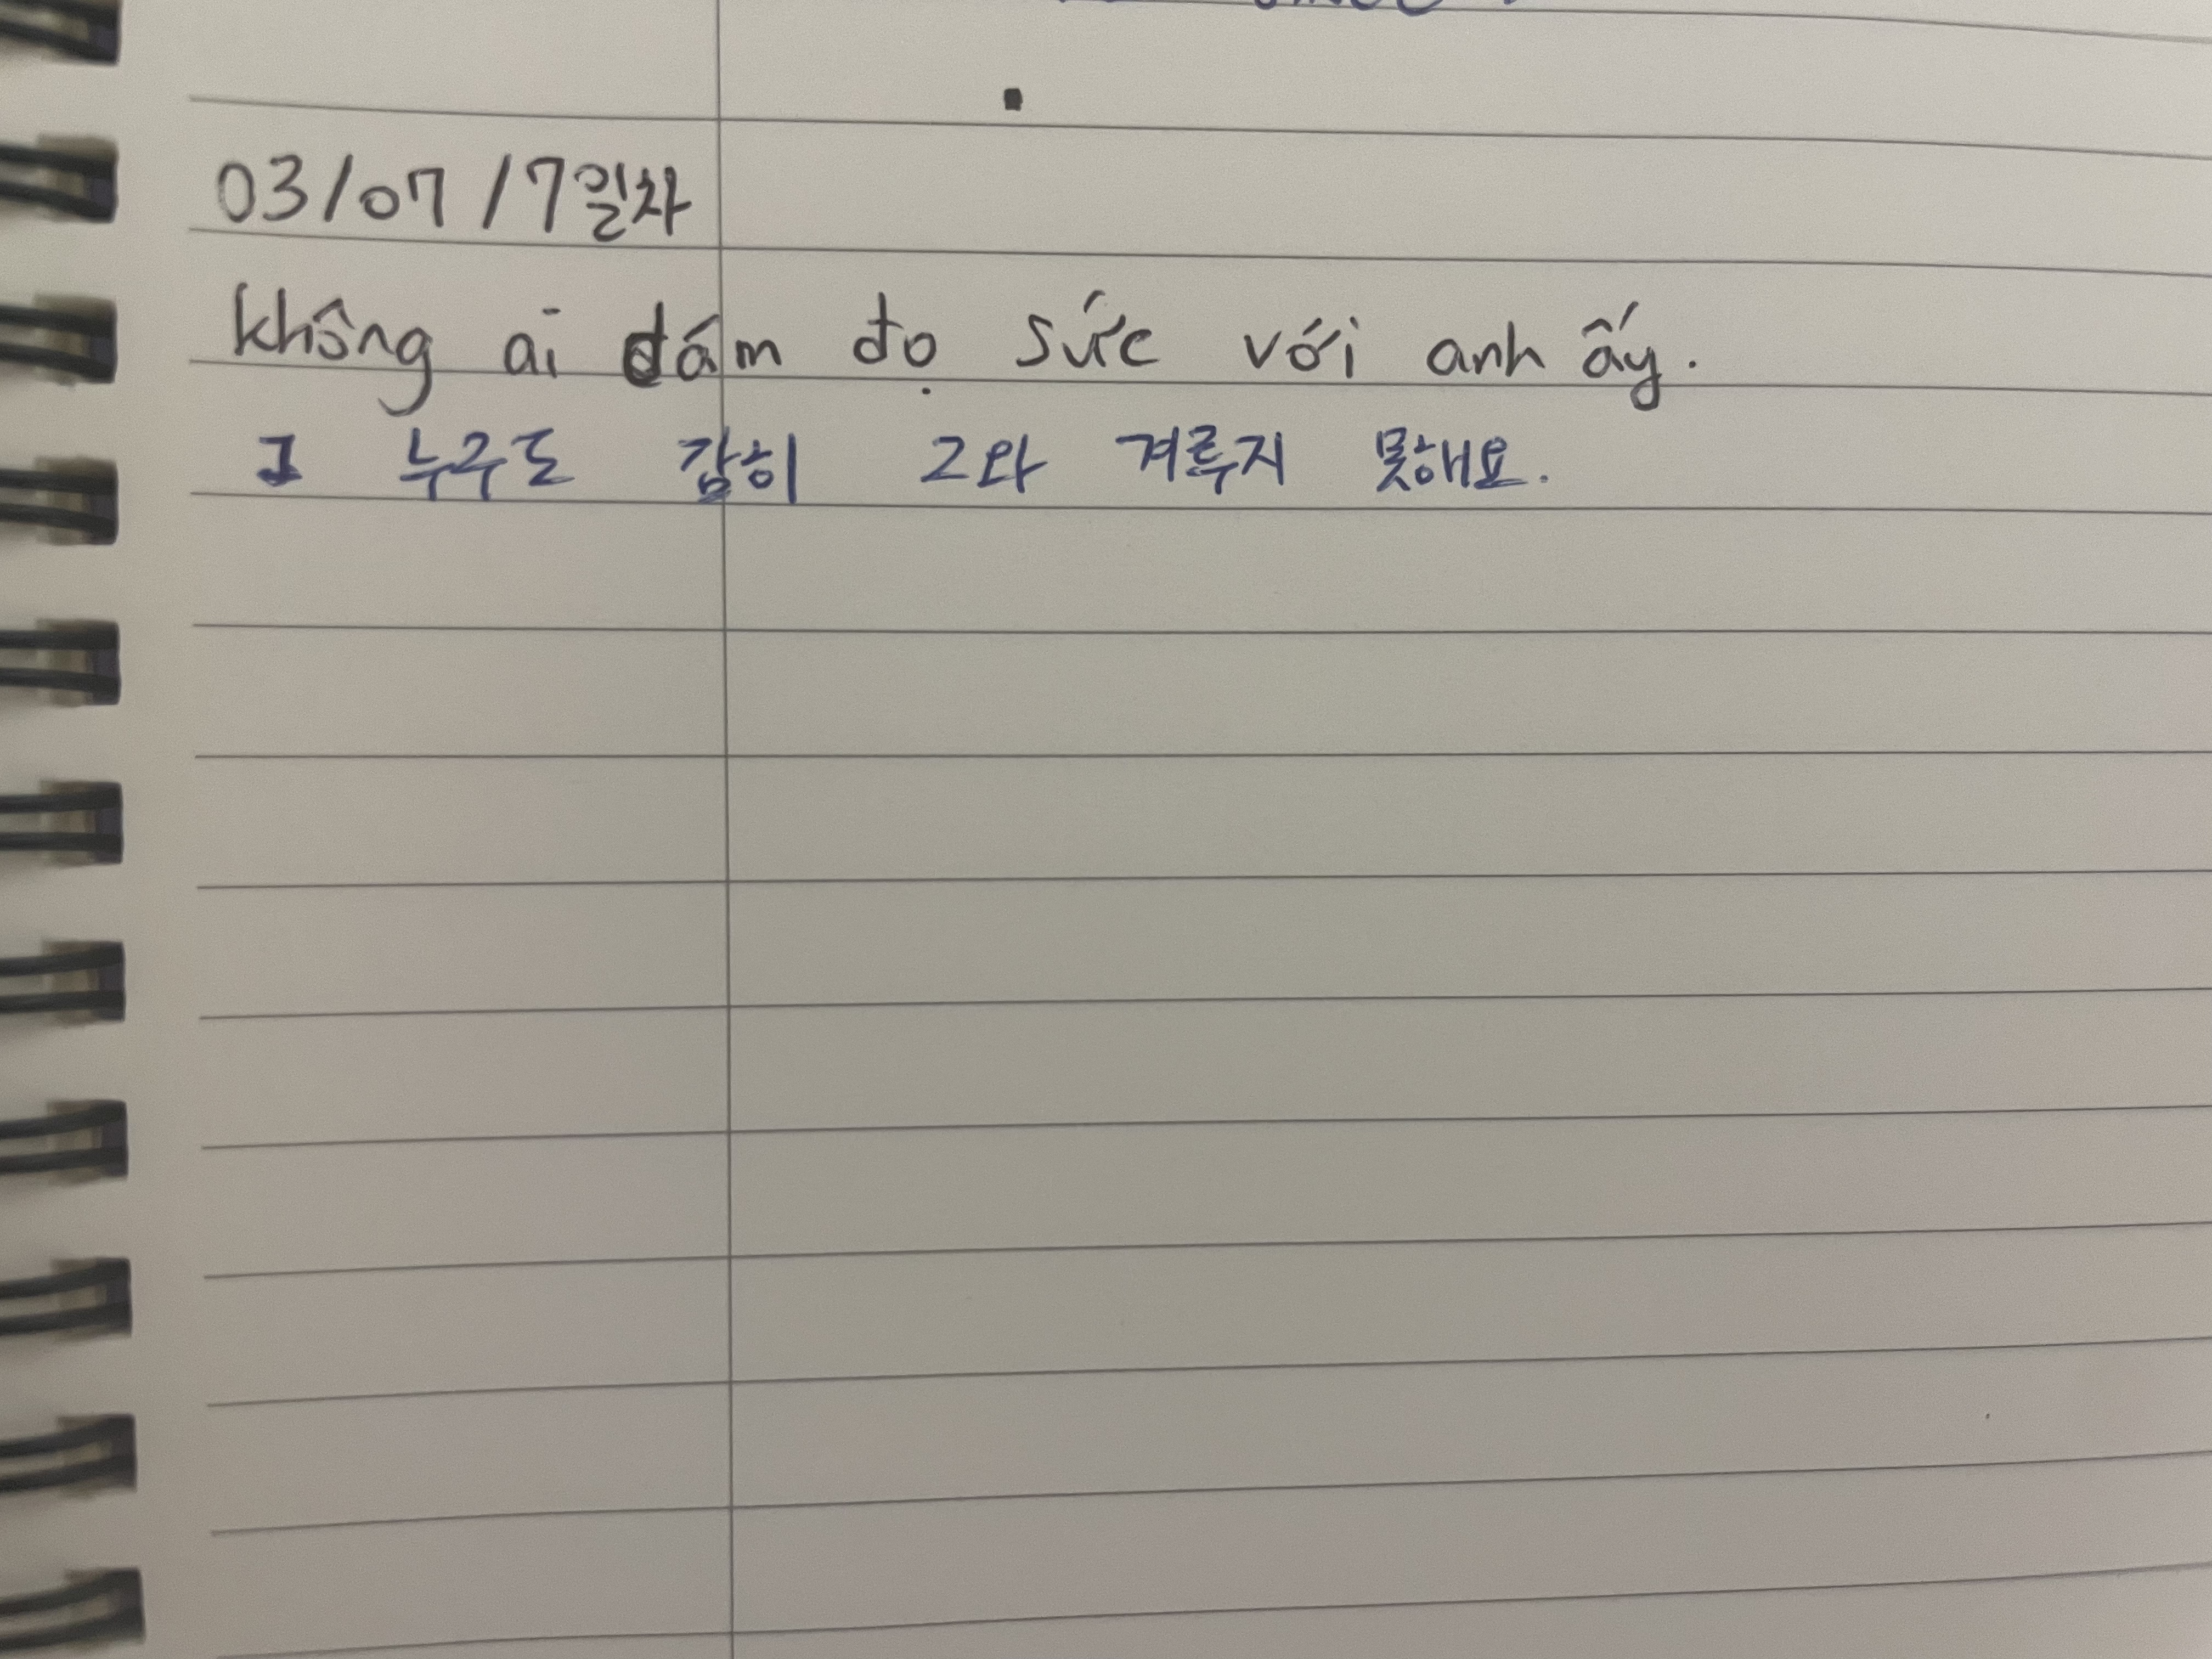 03/07/7일차
không ai dám đọ sức với anh ấy.
누구도 감히 그와 겨루지 못해요.